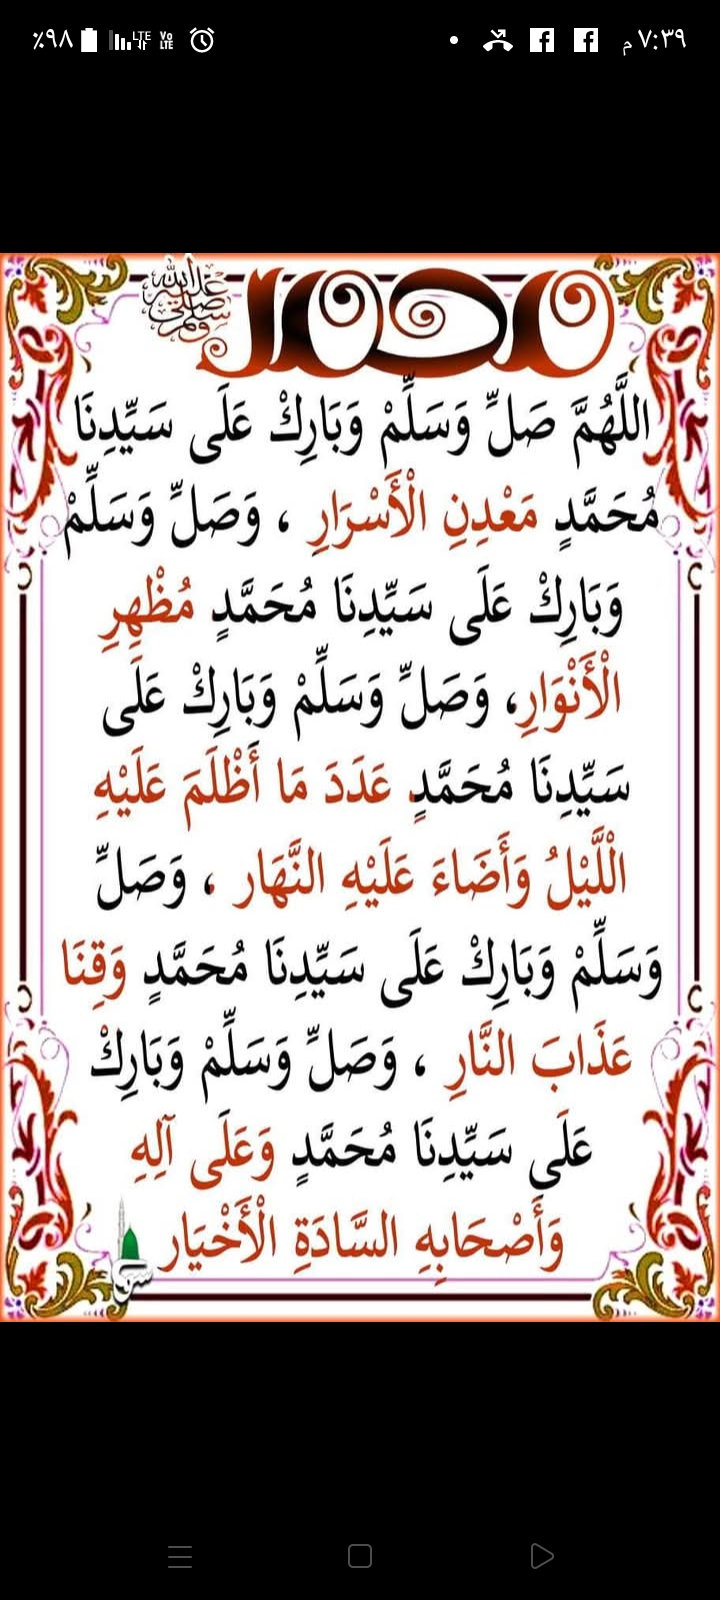 ٪٩٨ LTE Vo LTE ٧:٣٩ م
محمد صلى الله عليه وسلم
اللَّهُمَّ صَلِّ وَسَلِّمْ وَبَارِكْ عَلَى سَيِّدِنَا
مُحَمَّدٍ مَعْدِنِ الْأَسْرَارِ ، وَصَلِّ وَسَلِّمْ
وَبَارِكْ عَلَى سَيِّدِنَا مُحَمَّدٍ مُظْهِرِ
الْأَنْوَارِ، وَصَلِّ وَسَلِّمْ وَبَارِكْ عَلَى
سَيِّدِنَا مُحَمَّدٍ عَدَدَ مَا أَظْلَمَ عَلَيْهِ
الْلَّيْلُ وَأَضَاءَ عَلَيْهِ النَّهَار ، وَصَلِّ
وَسَلِّمْ وَبَارِكْ عَلَى سَيِّدِنَا مُحَمَّدٍ وَقِنَا
عَذَابَ النَّارِ ، وَصَلِّ وَسَلِّمْ وَبَارِكْ
عَلَى سَيِّدِنَا مُحَمَّدٍ وَعَلَى آلِهِ
وَأَصْحَابِهِ السَّادَةِ الْأَخْيَار